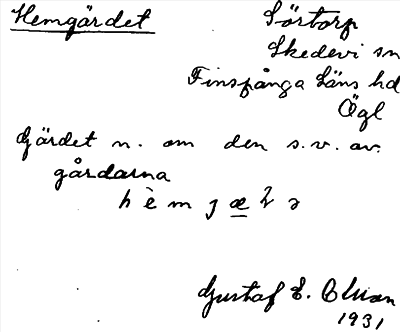 Hemgärdet
Sörtorp
Skedevi sn
Finspånga läns hd
Ögl
Gärdet n. om den s.v. av
gårdarna
Gustaf E. Olsson
1931